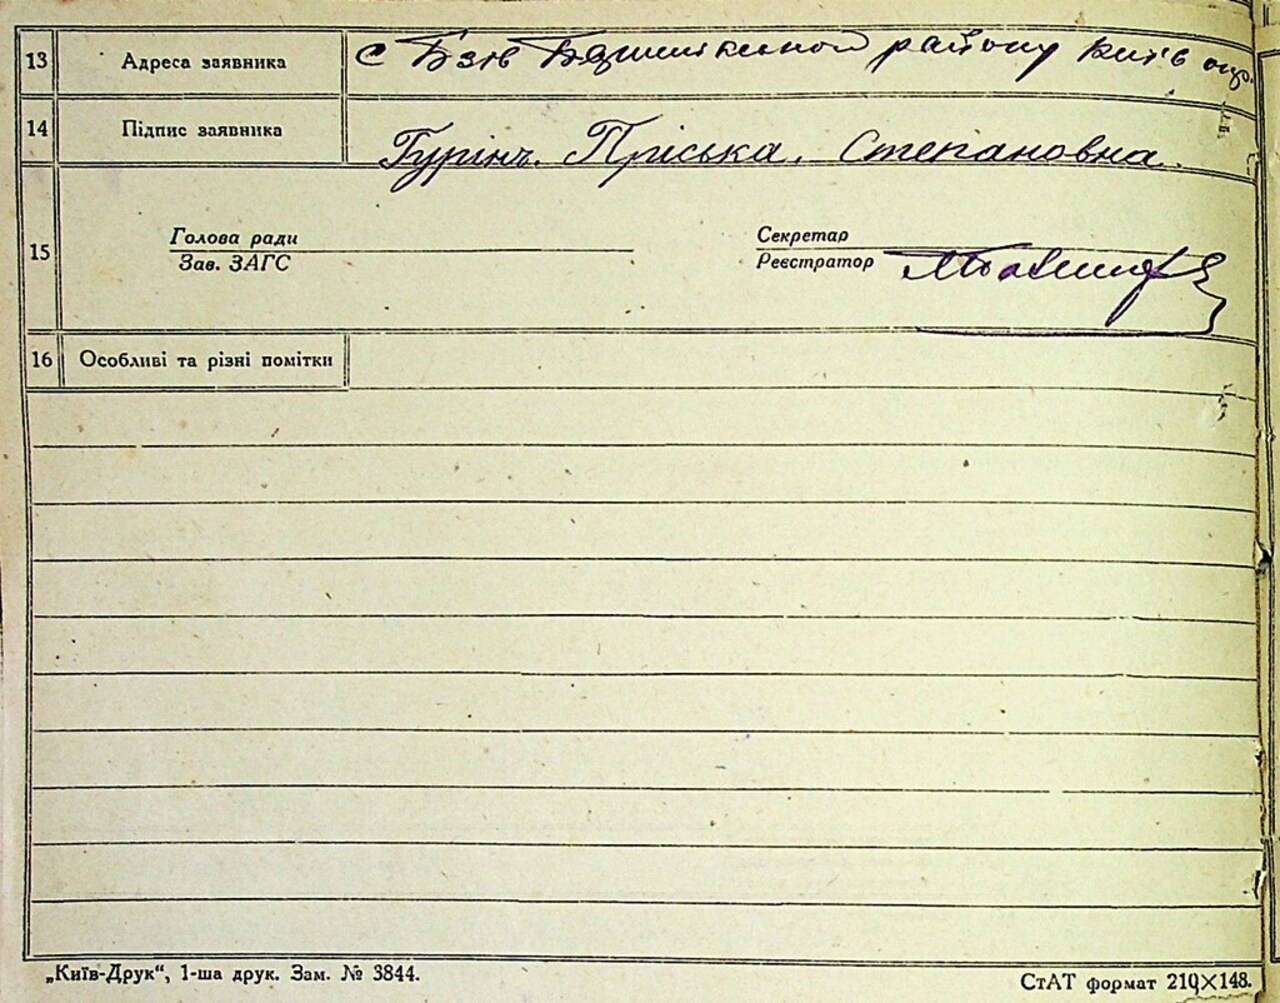 13 Адреса заявника с Бзів Баришівського району Київ окр.
14 Підпис заявника Гурінч. Пріська. Степановна.
15 Голова ради
Зав. ЗАГС
Секретар
Реєстратор
16 Особливі та різні помітки
„Київ-Друк“, 1-ша друк. Зам. № 3844.
СтАТ формат 210×148.